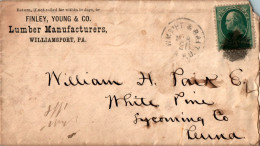 Return, if not called for within 10 days, to
FINLEY, YOUNG & CO.
Lumber Manufacturers,
WILLIAMSPORT, PA.
William H. Park Esq
White Pine
Lycoming Co
Penna